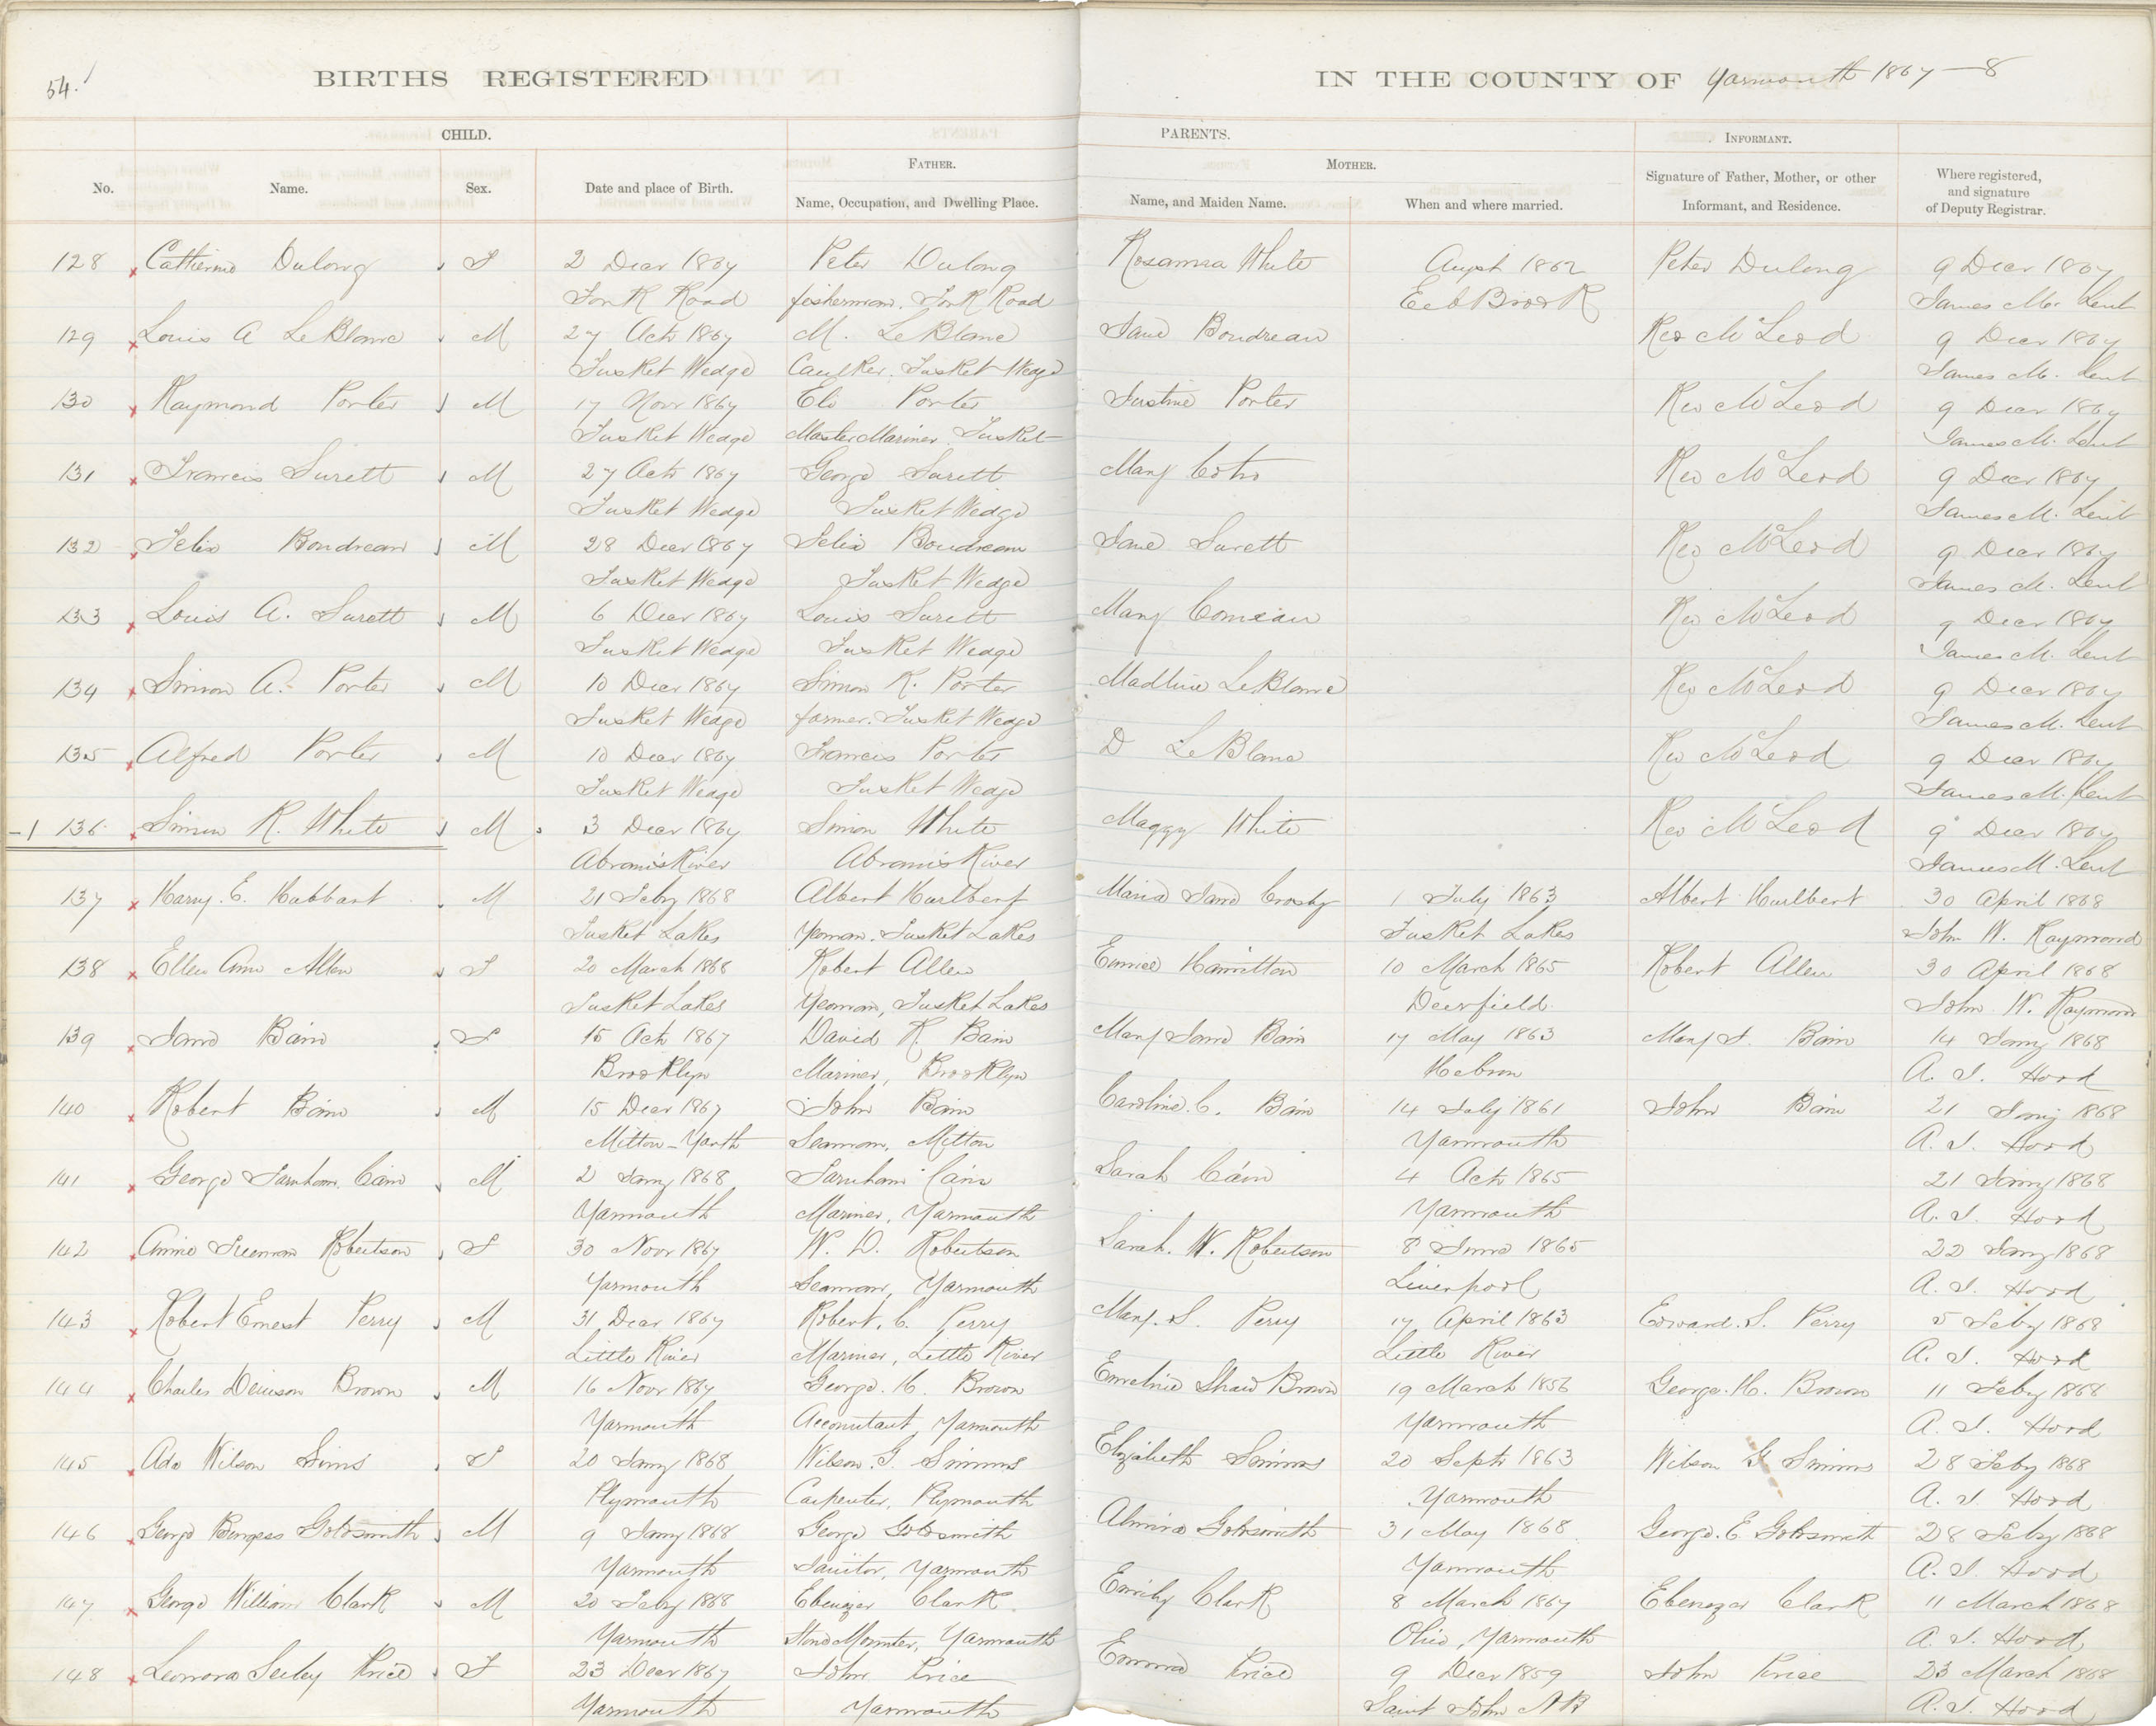 54.
BIRTHS REGISTERED IN THE COUNTY OF Yarmouth 1867-8
CHILD. PARENTS. INFORMANT.
FATHER. MOTHER.
No. Name. Sex. Date and place of Birth. Name, Occupation, and Dwelling Place. Name, and Maiden Name. When and where married. Signature of Father, Mother, or other Informant, and Residence. Where registered, and signature of Deputy Registrar.
128 Catherine Dulong F 2 Decr 1867 Peter Dulong Rosanna White Augst 1862 Peter Dulong 9 Decr 1867
Fork Road fisherman. Fork Road Eel Brook James M. Lent
129 Louis A LeBlanc M 27 Octr 1867 M. LeBlanc Jane Boudreau Rev McLeod 9 Decr 1867
Tusket Wedge Caulker. Tusket Wedge James M. Lent
130 Raymond Porter M 17 Novr 1867 Eli Porter Justine Porter Rev McLeod 9 Decr 1867
Tusket Wedge Master Mariner Tusket James M. Lent
131 Francis Surett M 27 Octr 1867 George Surett Mary Rev McLeod 9 Decr 1867
Tusket Wedge Tusket Wedge James M. Lent
132 Felix Boudreau M 28 Decr 1867 Felix Boudreau Jane Surett Rev McLeod 9 Decr 1867
Tusket Wedge Tusket Wedge James M. Lent
133 Louis A. Surett M 6 Decr 1867 Louis Surett Mary Comeau Rev McLeod 9 Decr 1867
Tusket Wedge Tusket Wedge James M. Lent
134 Simon A. Porter M 10 Decr 1867 Simon R. Porter Madline LeBlanc Rev McLeod 9 Decr 1867
Tusket Wedge farmer. Tusket Wedge James M. Lent
135 Alfred Porter M 10 Decr 1867 Francis Porter D LeBlanc Rev McLeod 9 Decr 1867
Tusket Wedge Tusket Wedge James M. Lent
-1 136 Simon R. White M 3 Decr 1867 Simon White Maggy White Rev McLeod 9 Decr 1867
Abram's River Abram's River James M. Lent
137 Harry. E. Habbart M 21 Feby 1868 Albert Hurlbert Maria Jane Crosby 1 July 1863 Albert Hurlbert 30 April 1868
Tusket Lakes Yeoman. Tusket Lakes Tusket Lakes John W. Raymond
138 Ellen Ann Allen F 20 March 1868 Robert Allen Eunice Hamilton 10 March 1865 Robert Allen 30 April 1868
Tusket Lakes Yeoman, Tusket Lakes Deerfield John W. Raymond
139 Jane Bain F 15 Octr 1867 David K Bain Mary Jane Bain 17 May 1863 Mary J. Bain 14 Jany 1868
Brooklyn Mariner, Brooklyn Hebron A. J. Hood
140 Robert Bain M 15 Decr 1867 John Bain Caroline. C. Bain 14 July 1861 John Bain 21 Jany 1868
Milton-Yarth Seaman, Milton Yarmouth A. J. Hood
141 George Farnham Cain M 2 Jany 1868 Farnham Cain Sarah Cain 4 Octr 1865 21 Jany 1868
Yarmouth Mariner, Yarmouth Yarmouth A. J. Hood
142 Annie Freeman Robertson F 30 Novr 1867 W. D. Robertson Sarah. W. Robertson 8 June 1865 22 Jany 1868
Yarmouth Seaman, Yarmouth Liverpool A. J. Hood
143 Robert Ernest Perry M 31 Decr 1867 Robert. C. Perry Mary. S. Perry 17 April 1863 Edward. S. Perry 5 Feby 1868
Little River Mariner, Little River Little River A. J. Hood
144 Charles Denison Brown M 16 Novr 1867 George. H. Brown Emeline Shaw Brown 19 March 1856 George. H. Brown 11 Feby 1868
Yarmouth Accountant, Yarmouth Yarmouth A. J. Hood
145 Ada Wilson Sims F 20 Jany 1868 Wilson. G. Simms Elizabeth Simms 20 Septr 1863 Wilson G Simms 28 Feby 1868
Plymouth Carpenter, Plymouth Yarmouth A. J. Hood
146 George Burgess Goldsmith M 9 Jany 1868 George Goldsmith Almira Goldsmith 31 May 1868 George. E. Goldsmith 28 Feby 1868
Yarmouth Janitor, Yarmouth Yarmouth A. J. Hood
147 George William Clark M 20 Feby 1868 Ebenezer Clark Emily Clark 8 March 1867 Ebenezer Clark 11 March 1868
Yarmouth Yarmouth Ohio, Yarmouth A. J. Hood
148 Leonora Seeley Price F 23 Decr 1867 John Price Emma Price 9 Decr 1859 John Price 23 March 1868
Yarmouth Yarmouth Saint John NB A. J. Hood